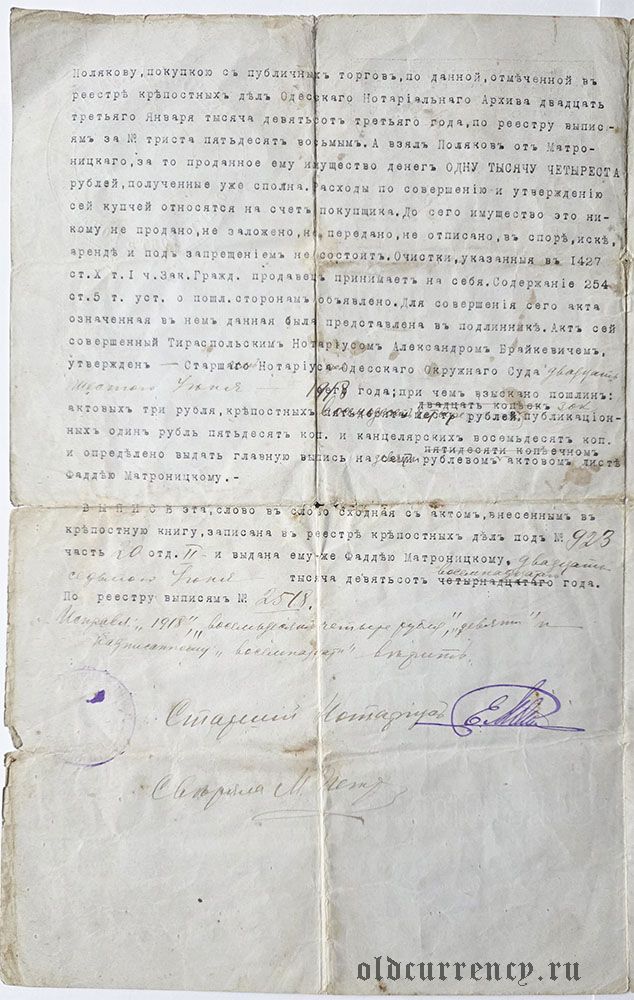 Полякову, покупкою съ публичныхъ торговъ, по данной, отмѣченной въ
реестрѣ крѣпостныхъ дѣлъ Одесскаго Нотаріальнаго Архива двадцать
третьяго Января тысяча девятьсотъ третьяго года, по реестру выпис-
ямъ за № триста пятьдесятъ восьмымъ. А взялъ Поляковъ отъ Матро-
ницкаго, за то проданное ему имущество денегъ ОДНУ ТЫСЯЧУ ЧЕТЫРЕСТА
рублей, полученные уже сполна. Расходы по совершенію и утвержденію
сей купчей относятся на счетъ покупщика. До сего имущество это ни-
кому не продано, не заложено, не передано, не отписано, въ спорѣ, искѣ,
арендѣ и подъ запрещеніемъ не состоитъ. Очистки, указанныя въ 1427
ст. X т. I ч. Зак. Гражд. продавецъ принимаетъ на себя. Содержаніе 254
ст. 5 т. уст. о пошл. сторонамъ объявлено. Для совершенія сего акта
означенная въ немъ данная была представлена въ подлинникѣ. Актъ сей
совершенный Тираспольскимъ Нотаріусомъ Александромъ Брайкевичемъ,
утвержденъ — Старшимъ Нотаріусомъ Одесскаго Окружнаго Суда двадцать
шестого Іюня — 1918 года; при чемъ взыскано пошлинъ:
двадцать копѣекъ
актовыхъ три рубля, крѣпостныхъ рублей, публикаціон-
ныхъ одинъ рубль пятьдесятъ коп. и канцелярскихъ восемьдесятъ коп.
пятидесяти копѣечномъ
и опредѣлено выдать главную выпись на рублевомъ актовомъ листѣ
Фаддѣю Матроницкому.-
ВЫПИСЬ эта, слово въ слово сходная съ актомъ, внесеннымъ въ
крѣпостную книгу, записана въ реестрѣ крѣпостныхъ дѣлъ подъ № 923
часть 20 отд. II и выдана ему-же Фаддѣю Матроницкому, двадцать
восемнадцатаго
седьмого Іюня тысяча девятьсотъ четырнадцатаго года.
По реестру выписямъ № 2518.
Исправл: "1918" восемьдесятъ четыре рубля", "девяти" и
надписанному "восемнадцат" вѣрить.
Старшій Нотаріусъ
Свѣряла М.
oldcurrency.ru